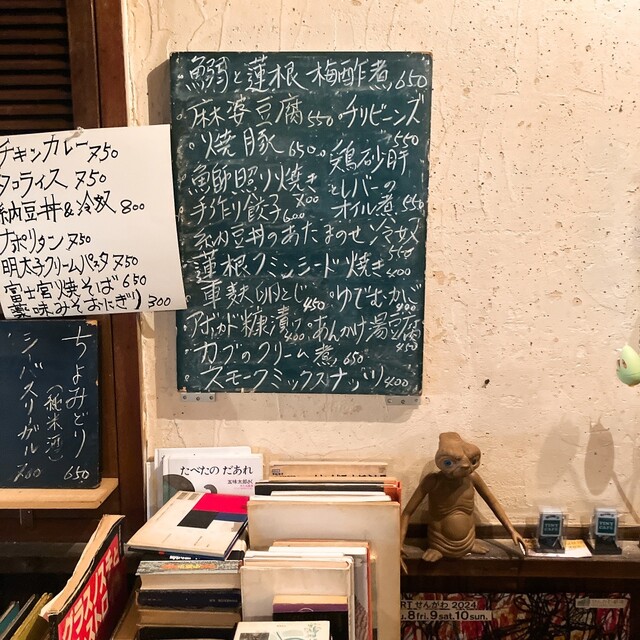 鰯と蓮根 梅酢煮 650
麻婆豆腐 550 チリビーンズ 550
焼豚 650 鶏砂肝とレバーのオイル煮 550
鰤照り焼き 700
手作り餃子 600
納豆丼のあたまのせ冷奴 550
蓮根クミンシード焼き 400
車麸卵とじ 450 ゆでむかご 400
アボカド糠漬け 400 あんかけ湯豆腐 450
カブのクリーム煮 650
スモークミックスナッツ 400
チキンカレー 750
タコライス 750
納豆丼&冷奴 800
ナポリタン 750
明太子クリームパスタ 750
富士宮焼そば 650
薬味みそおにぎり 300
ちよみどり
(純米酒) 650
シーバスリーガル 700
たべたの だあれ
五味太郎
クラスノスチョ
RT せんがわ 2024
8fri.9sat.10sun.